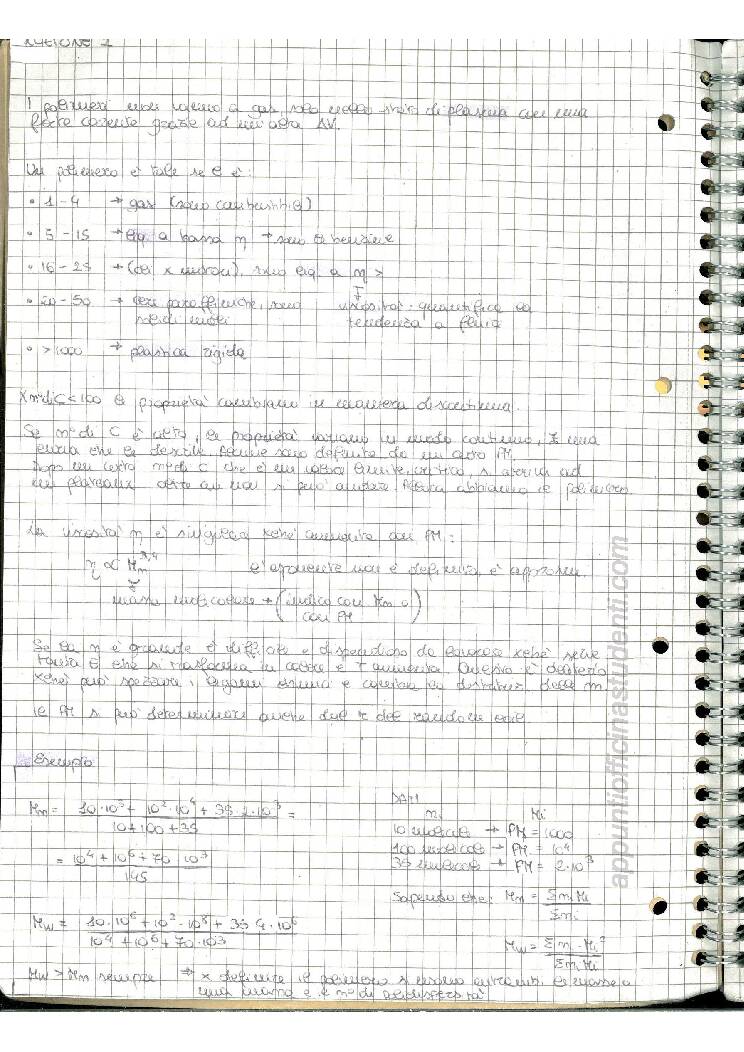 LEZIONE 2
I polimeri non vanno a gas, solo nello stato di plasma con una
forte corrente grazie ad un'alta ΔV.
Un polimero è tale se C è:
• 1-4 → gas (sono combustibili)
• 5-15 → liq. a bassa η → sono le benzine
• 16-25 → (oli x motori), sono liq. a η >
• 20-50 → cere paraffiniche, sono viscosità: quantifica la
solidi molli tendenza a fluire
• >1000 → plastica rigida
X n° di C<100 le proprietà cambiano in maniera discontinua.
Se n° di C è alto, le proprietà variano in modo continuo, ∃ una
curva che le descrive. sono definite da un certo PM.
Dopo un certo n° di C che è un valore limite, critico, si arriva ad
un plateaux oltre cui non si può andare. abbiamo il polimero.
La viscosità η è singolare xché aumenta con PM:
η ∝ Mm^3,4 l'esponente non è definito, è approssim.
massa molecolare → (indico con Mm o
con PM)
Se la η è grande è difficile e dispendioso da lavorare xché serve
tanta E che si trasforma in calore e T aumenta. Questo è deleterio
xché può spezzare i legami e cambia la distribuz. delle m.
Il PM si può determinare anche dal r del random coil
Esempio
Mn = 10·10³ + 10²·10⁴ + 35·2·10³ / 10+100+35 =
= 10⁴ + 10⁶ + 70·10³ / 145
DATI
ni Mi
10 molecole → PM = 1000
100 molecole → PM = 10⁴
35 molecole → PM = 2·10³
Sapendo che: Mn = Σni Mi / Σni
Mw = 10·10⁶ + 10²·10⁸ + 35·4·10⁶ / 10⁴ + 10⁶ + 70·10³
Mw = Σni·Mi² / Σni Mi
Mw > Mn sempre → x definire il polimero si usano entrambi. le masse
e l'n° di polidispersità
appuntiofficinastudenti.com